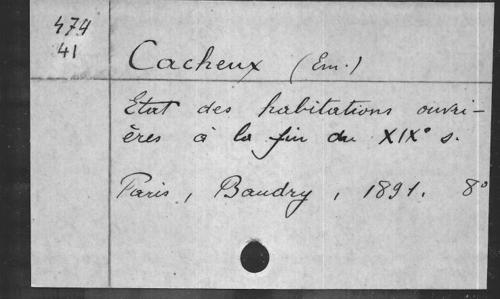 474
41
Cacheux (Em.)
Etat des habitations ouvri-
ères à la fin du XIXe s.
Paris, Baudry, 1891. 8o